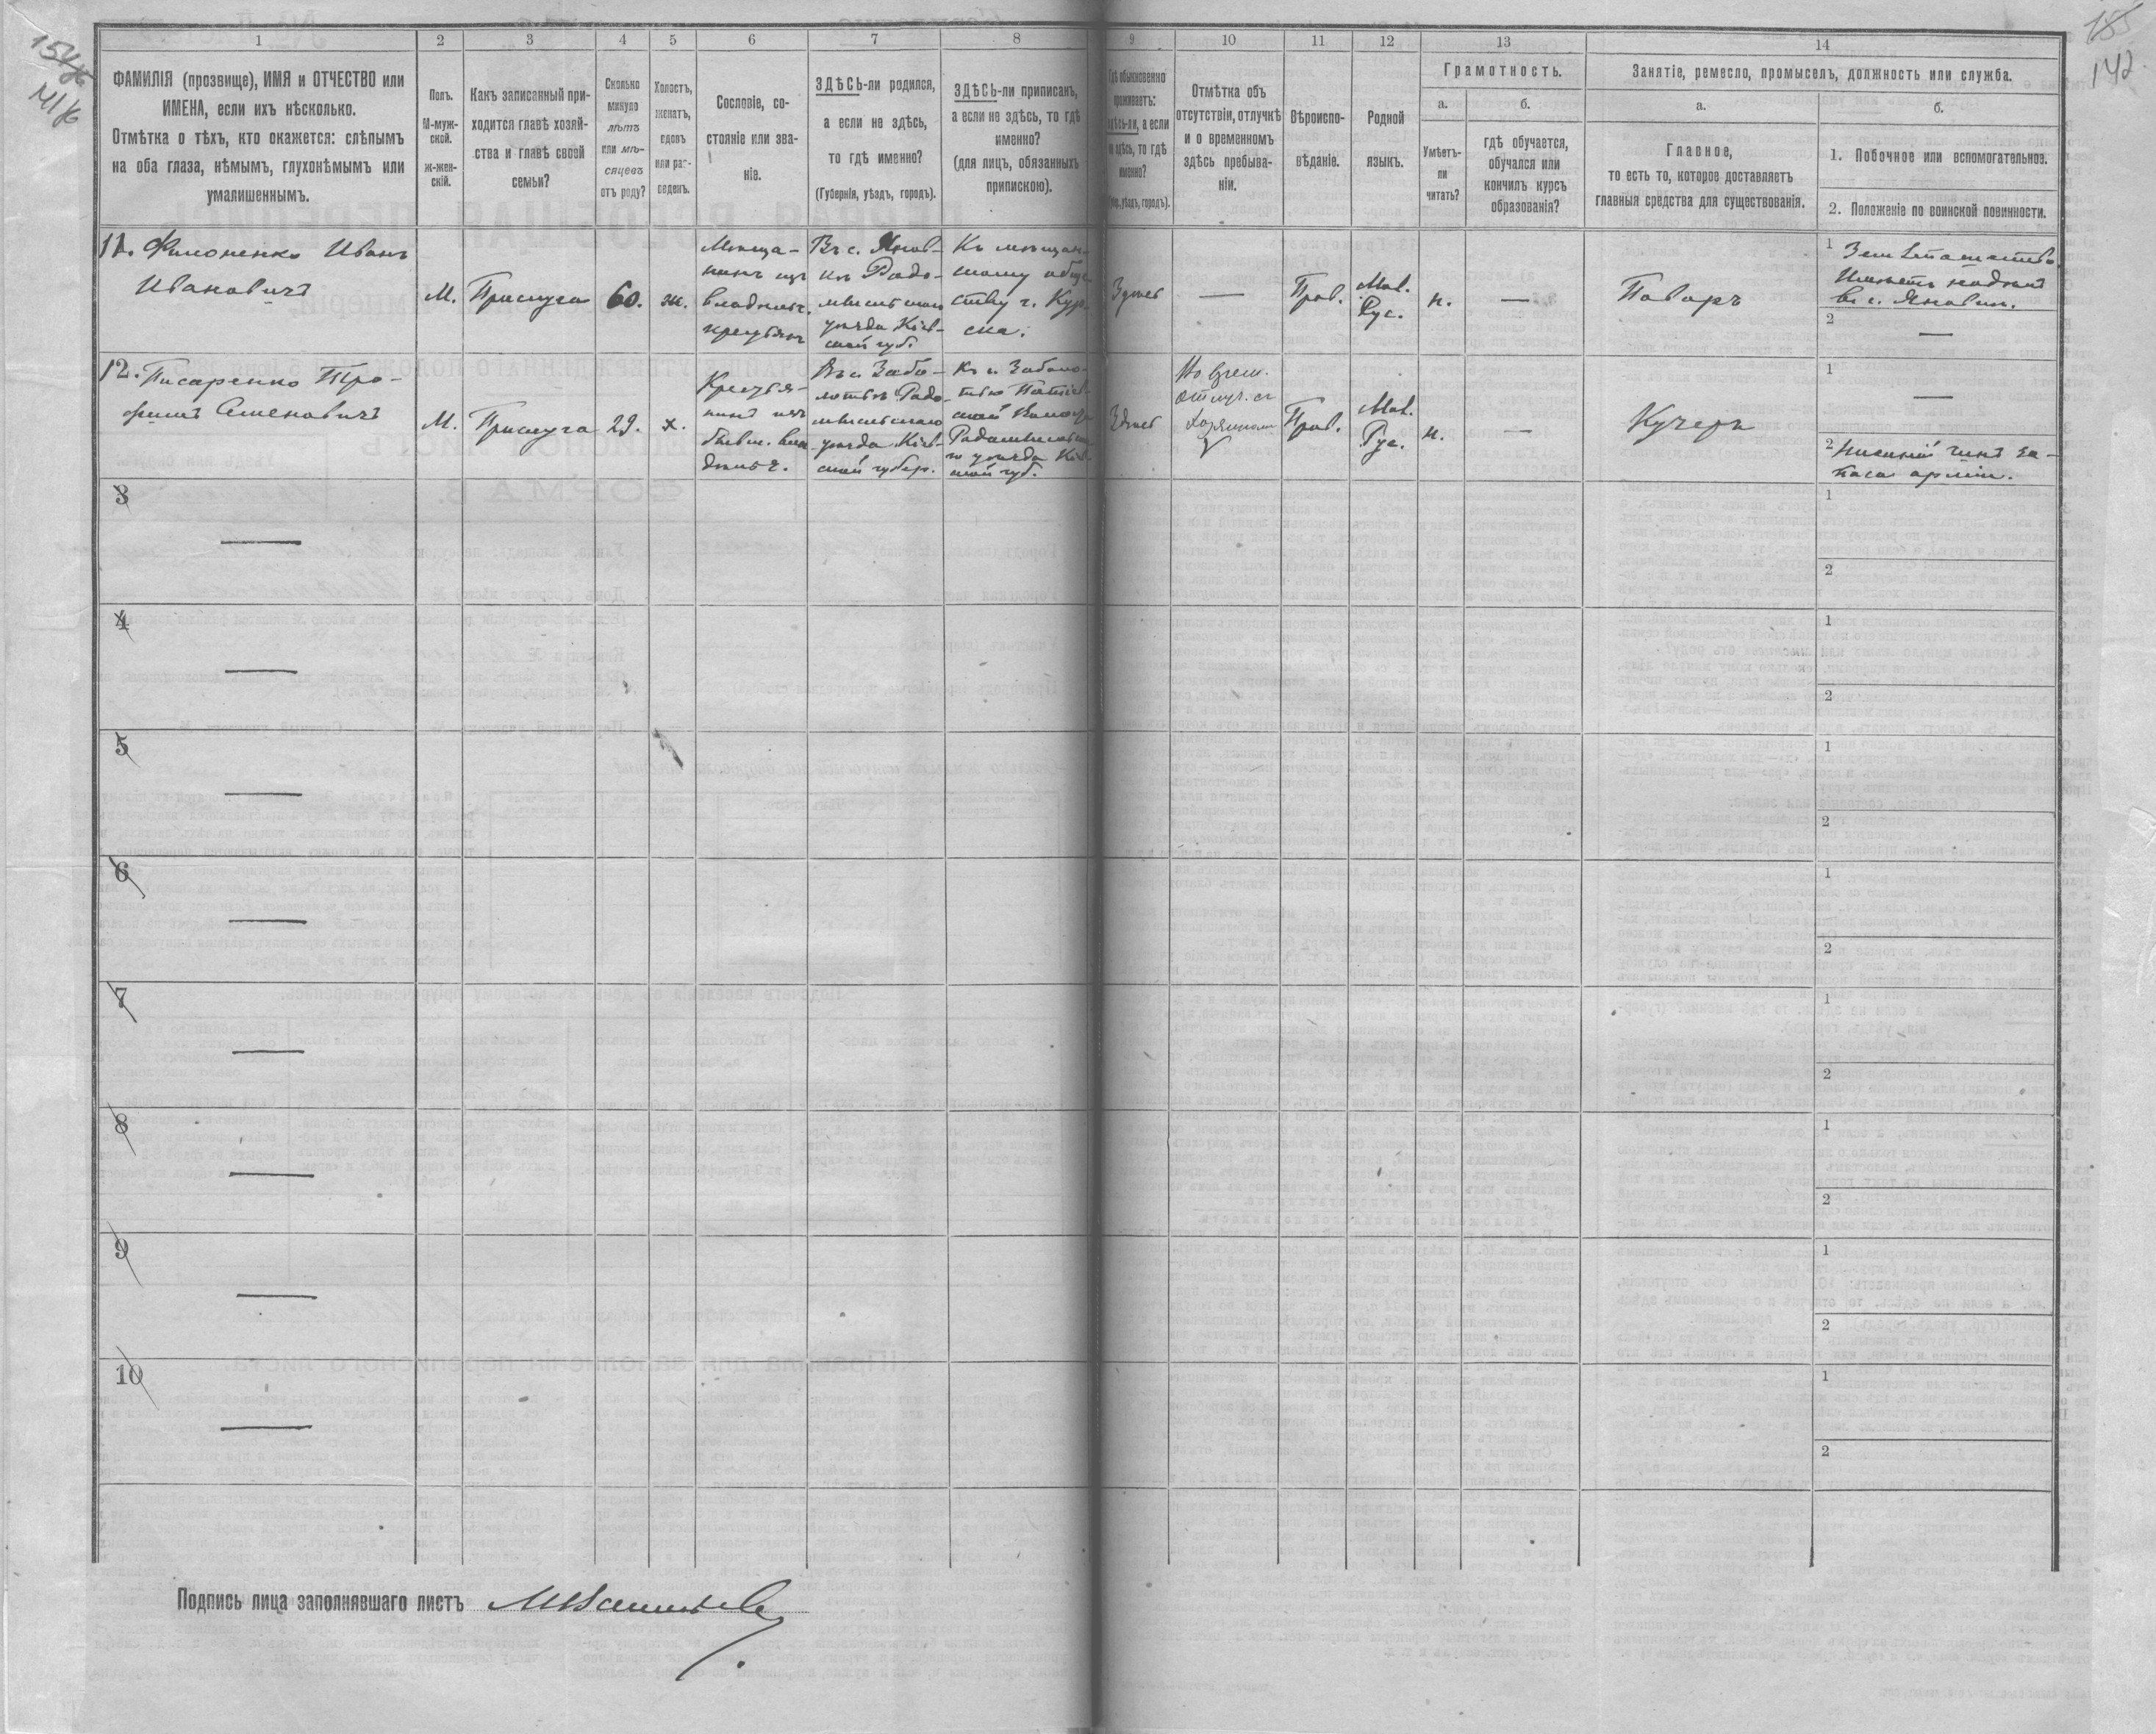 154/б
141/б
155
142
1
2
3
4
5
6
7
8
9
10
11
12
13
14
ФАМИЛІЯ (прозвище), ИМЯ и ОТЧЕСТВО или
ИМЕНА, если ихъ нѣсколько.
Отмѣтка о тѣхъ, кто окажется: слѣпымъ
на оба глаза, нѣмымъ, глухонѣмымъ или
умалишеннымъ.
Полъ.
М-муж-
ской.
ж-жен-
скій.
Какъ записанный при-
ходится главѣ хозяй-
ства и главѣ своей
семьи?
Сколько
минуло
лѣтъ
или мѣ-
сяцевъ
отъ роду?
Холостъ,
женатъ,
вдовъ
или раз-
веденъ.
Сословіе, со-
стояніе или зва-
ніе.
ЗДѢСЬ-ли родился,
а если не здѣсь,
то гдѣ именно?
(Губернія, уѣздъ, городъ).
ЗДѢСЬ-ли приписанъ,
а если не здѣсь, то гдѣ
именно?
(для лицъ, обязанныхъ
припискою).
Гдѣ обыкновенно
проживаетъ:
здѣсь-ли, а если
не здѣсь, то гдѣ
именно?
(Губ., уѣздъ, городъ).
Отмѣтка объ
отсутствіи, отлучкѣ
и о временномъ
здѣсь пребыва-
ніи.
Вѣроиспо-
вѣданіе.
Родной
языкъ.
Грамотность.
а.
б.
Умѣетъ-
ли
читать?
гдѣ обучается,
обучался или
кончилъ курсъ
образованія?
Занятіе, ремесло, промыселъ, должность или служба.
а.
б.
Главное,
то есть то, которое доставляетъ
главныя средства для существованія.
1. Побочное или вспомогательное.
2. Положеніе по воинской повинности.
11. Филоненко Иванъ
Ивановичъ
М.
Прислуга
60.
ж.
Мѣща-
нинъ изъ
владѣльч.
крестьянъ
Въ с. Янов-
кѣ Радо-
мысльскаго
уѣзда Кіев-
ской губ.
Къ мѣщан-
скому обще-
ству г. Кур-
ска.
Здѣсь
—
Прав.
Мал.
Рус.
н.
—
Поваръ
1
Имѣетъ надѣлъ
въ с.
2
—
12. Писаренко Тро-
фимъ Семеновичъ
М.
Прислуга
29.
х.
Крестья-
нинъ изъ
бывш. вла-
дѣльч.
Въ с. Забо-
лотьѣ Радо-
мысльскаго
уѣзда Кіев-
ской губер.
Къ с. Заболо-
тью
ской Волости
Радомысльска-
го уѣзда Кіев-
ской губ.
Здѣсь
Во врем.
отлуч. съ
Прав.
Мал.
Рус.
н.
—
Кучеръ
1
—
2 Нижній чинъ за-
паса арміи.
3
—
1
2
4
—
1
2
5
—
1
2
6
—
1
2
7
—
1
2
8
—
1
2
9
—
1
2
10
—
1
2
Подпись лица заполнявшаго листъ